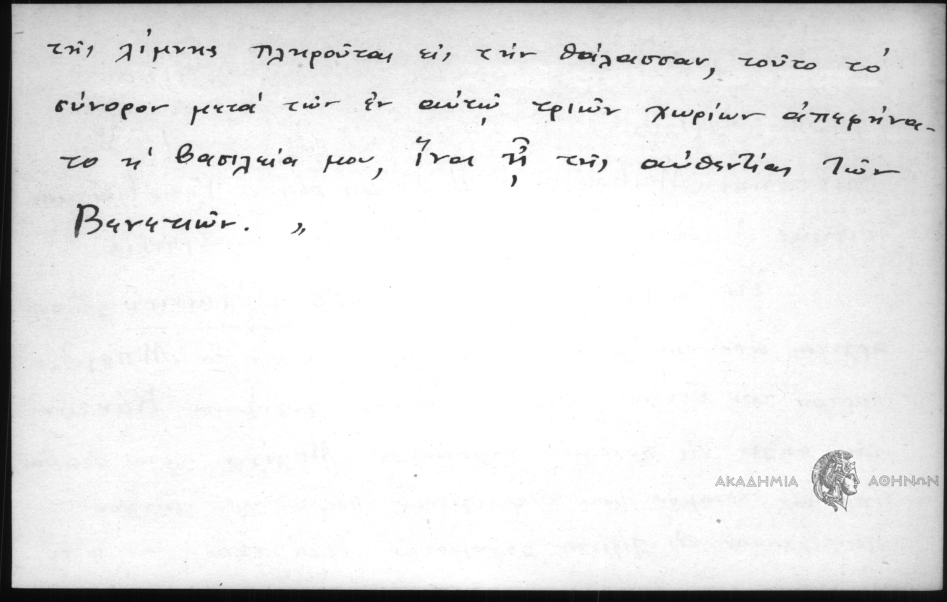 τῆς λίμνης πληροῦται εἰς τὴν θάλασσαν, τοῦτο τὸ
σύνορον μετὰ τῶν ἐν αὐτῷ τριῶν χωρίων ἀπεφήνα-
το ἡ βασιλεία μου, ἵνα ᾖ τῆς αὐθεντίας τῶν
Βενετιῶν. „
ΑΚΑΔΗΜΙΑ ΑΘΗΝΩΝ